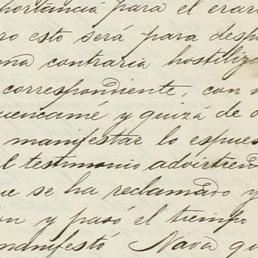 portancia para el erar
ro esto será para desp
una contraria hostiliz
correspondiente, con
uencamé y quizá de o
manifestar lo espues
l testimonio advirtien
ue se ha reclamado y
on y pasó el tiempo
manifestó Nava qu